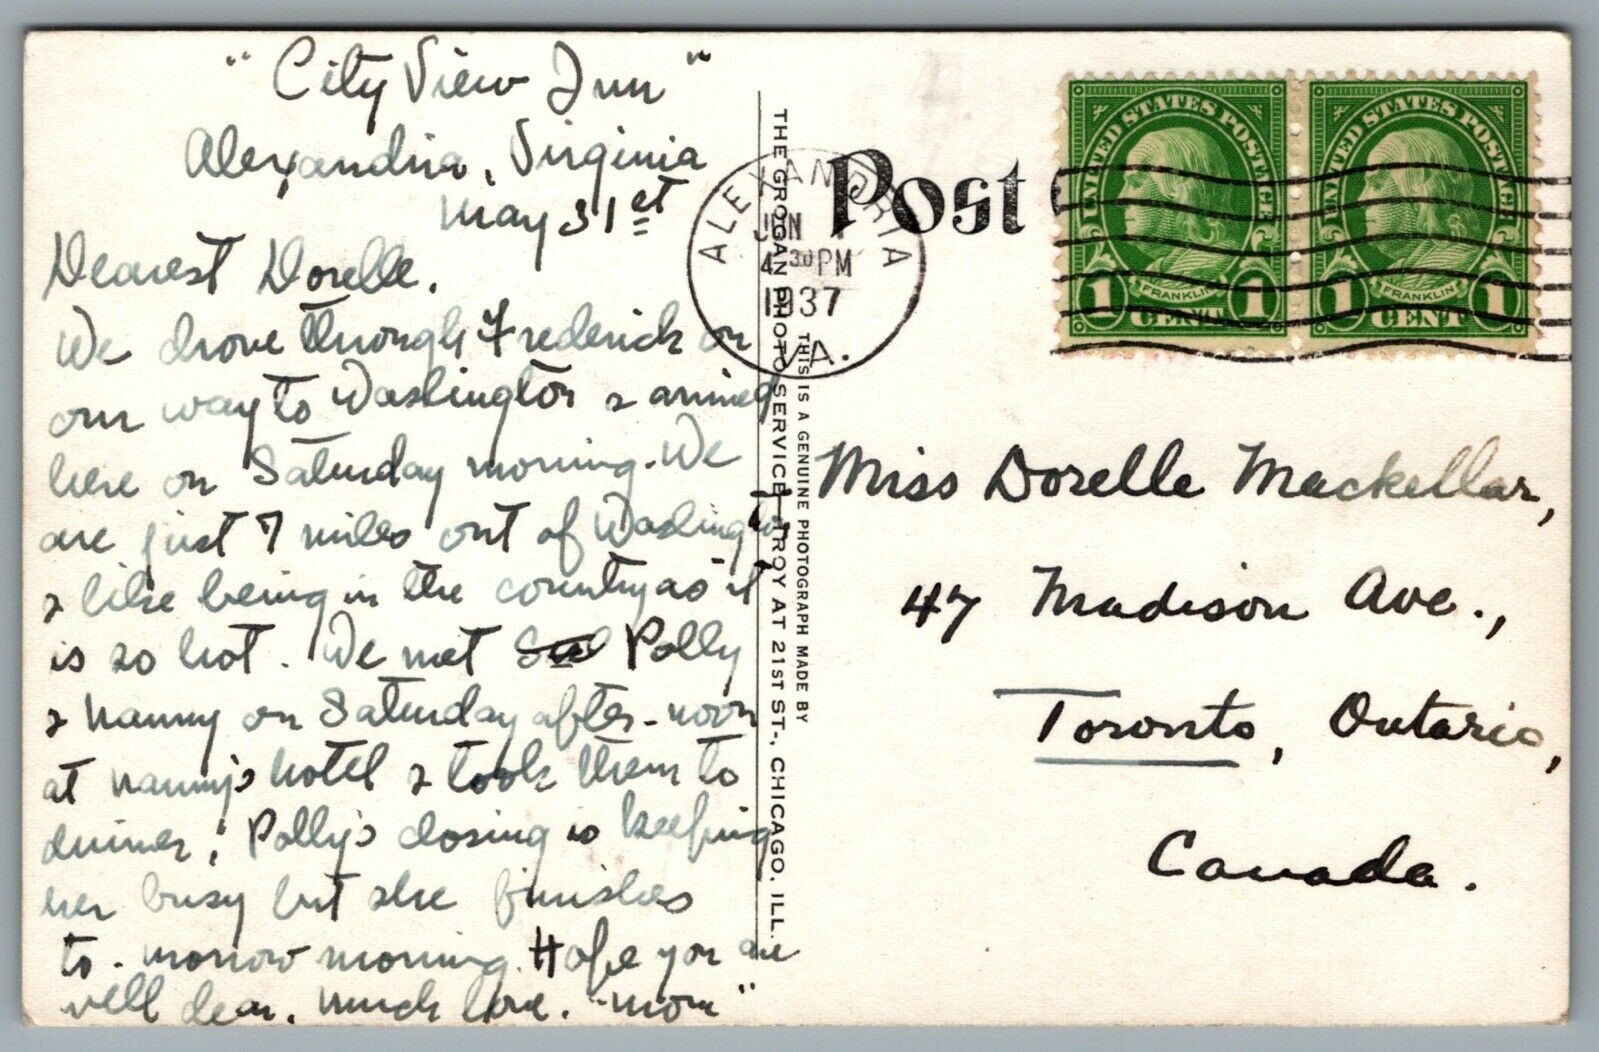 "City View Inn"
Alexandria, Virginia
May 31st
Dearest Dorelle.
We drove through Frederick on
our way to Washington & arrived
here on Saturday morning. We
are just 7 miles out of Washington
& like being in the country as it
is so hot. We met Polly
& Nanny on Saturday after-noon
at Nanny's hotel & took them to
dinner; Polly's closing is keeping
her busy but she finishes
to-morrow morning. Hope you are
well dear. Much love. "Mom"
THE GROGAN PHOTO SERVICE, TROY AT 21ST ST., CHICAGO, ILL.
THIS IS A GENUINE PHOTOGRAPH MADE BY
ALEXANDRIA
JUN 1
4 30 PM
1937
VA.
Post
UNITED STATES POSTAGE
FRANKLIN
1 CENT 1
UNITED STATES POSTAGE
FRANKLIN
1 CENT 1
Miss Dorelle Mackellar,
47 Madison Ave.,
Toronto, Ontario,
Canada.